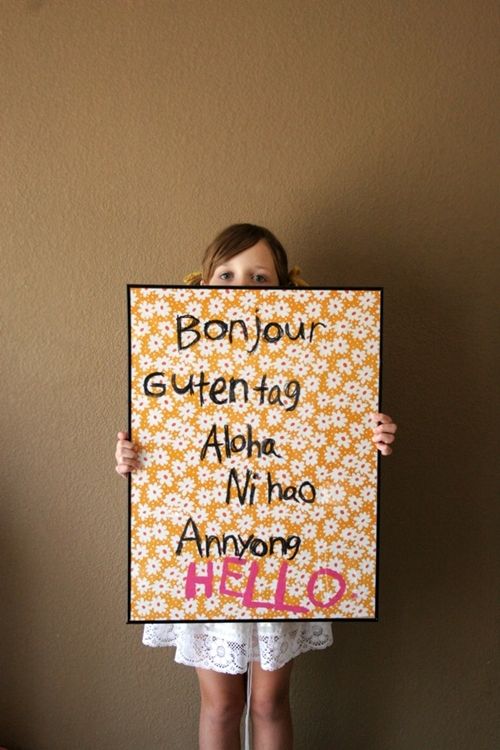 Bonjour
Guten tag
Aloha
Ni hao
Annyong
HELLO